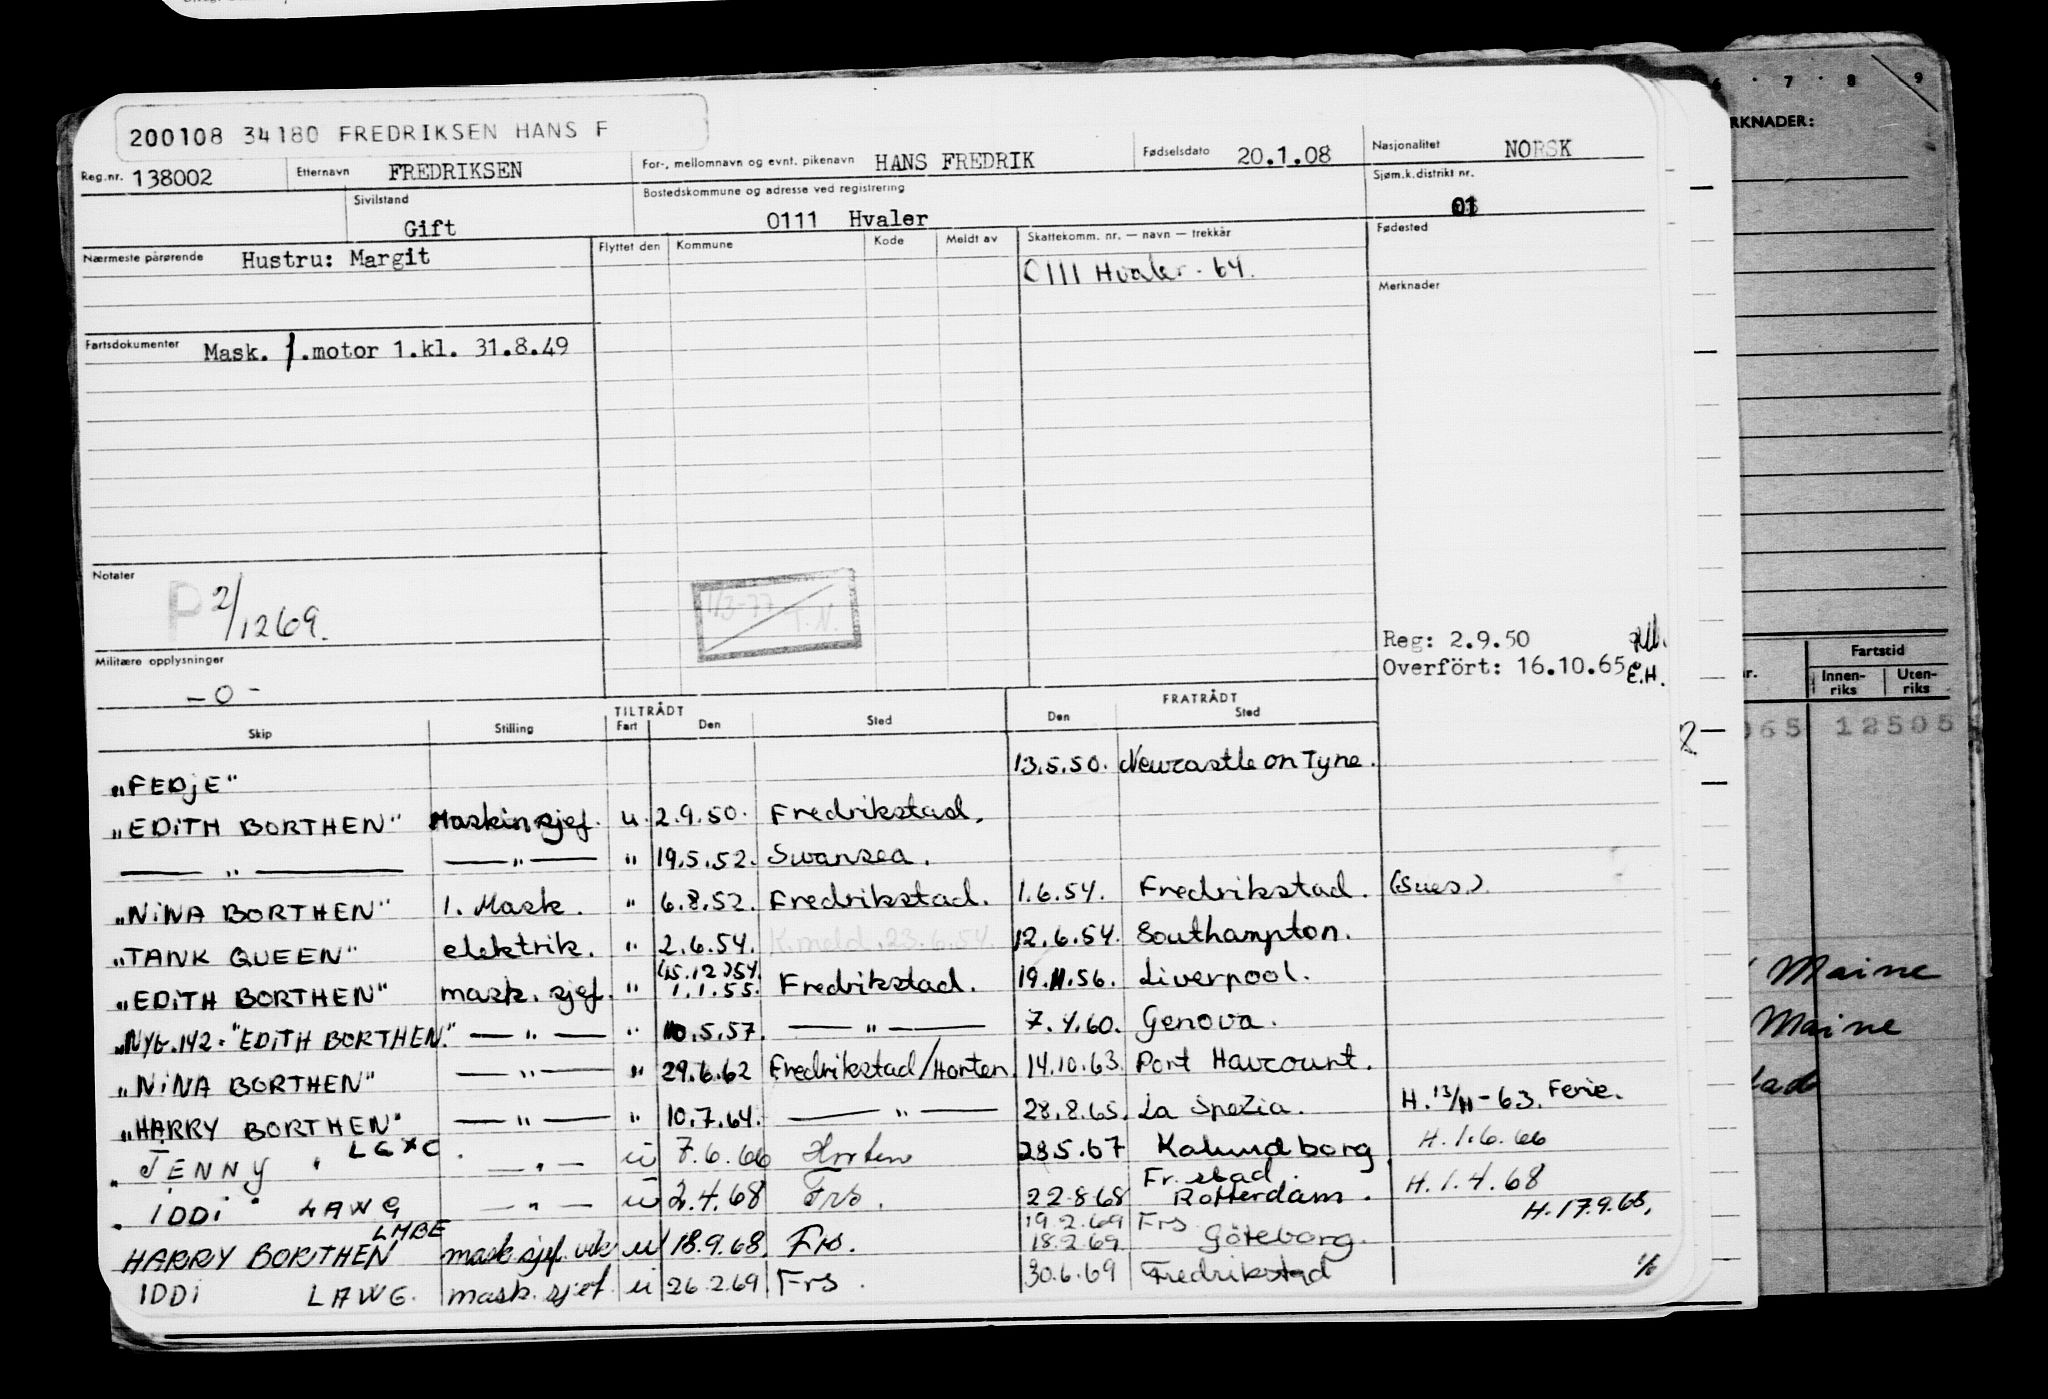 200108 34180 FREDRIKSEN HANS F
Reg.nr. 138002 Etternavn FREDRIKSEN For-, mellomnavn og evnt. pikenavn HANS FREDRIK Fødselsdato 20.1.08 Nasjonalitet NORSK
Sivilstand Gift Bostedskommune og adresse ved registrering 0111 Hvaler Sjøm.k.distrikt nr. 01
Nærmeste pårørende Hustru: Margit Flyttet den Kommune Kode Meldt av Skattekomm. nr. — navn — trekkår Fødested
0111 Hvaler - 64.
Merknader
Fartsdokumenter Mask. 1.motor 1.kl. 31.8.49
Notater
P 2/1269.
1/3-77 T.N.
Militære opplysninger
- 0 -
Reg: 2.9.50
Overført: 16.10.65 E.H.
TILTRÅDT FRATRÅDT
Skip Stilling Fart Den Sted Den Sted
"FEDjE" 13.5.50. Newcastle on Tyne.
"EDiTH BORTHEN" Maskinsjef. u. 2.9.50. Fredrikstad.
— " — — " — " 19.5.52. Swansea.
"NiNA BORTHEN" 1. Mask. " 6.8.52. Fredrikstad. 1.6.54. Fredrikstad. (Sues.)
"TANK QUEEN" elektrik. " 2.6.54. K.meld. 23.6.54. 12.6.54. Southampton.
(15.12)54.
"EDiTH BORTHEN" mask. sjef. " 1.1.55. Fredrikstad. 19.11.56. Liverpool.
"NYG.142-"EDiTH BORTHEN." — " — " 10.5.57. — " — 7.4.60. Genova.
"NiNA BORTHEN" — " — " 29.6.62 Fredrikstad/Horten 14.10.63. Port Harcourt.
"HARRY BORTHEN" — " — " 10.7.64. — " — 28.8.65. La Spezia. H. 13/11-63. Ferie.
"JENNY " LGXC. — " — u 7.6.66 Horten 28.5.67 Kalundborg H.1.6.66
Fr.stad
" IDDi " LAWG — " — u 2.4.68 Frs. 22.8.68 Rotterdam. H.1.4.68
19.2.69 Frs. H.17.9.68.
HARRY BORTHEN LMBE mask sjef. vik u 18.9.68. Frs. 18.2.69. Göteborg.
IDDi LAWG. mask. sjef. u 26.2.69 Frs. 30.6.69 Fredrikstad
6 7 8 9
RKNADER:
r. Fartstid
Innen-riks Uten-riks
065 12505
Maine
Maine
2